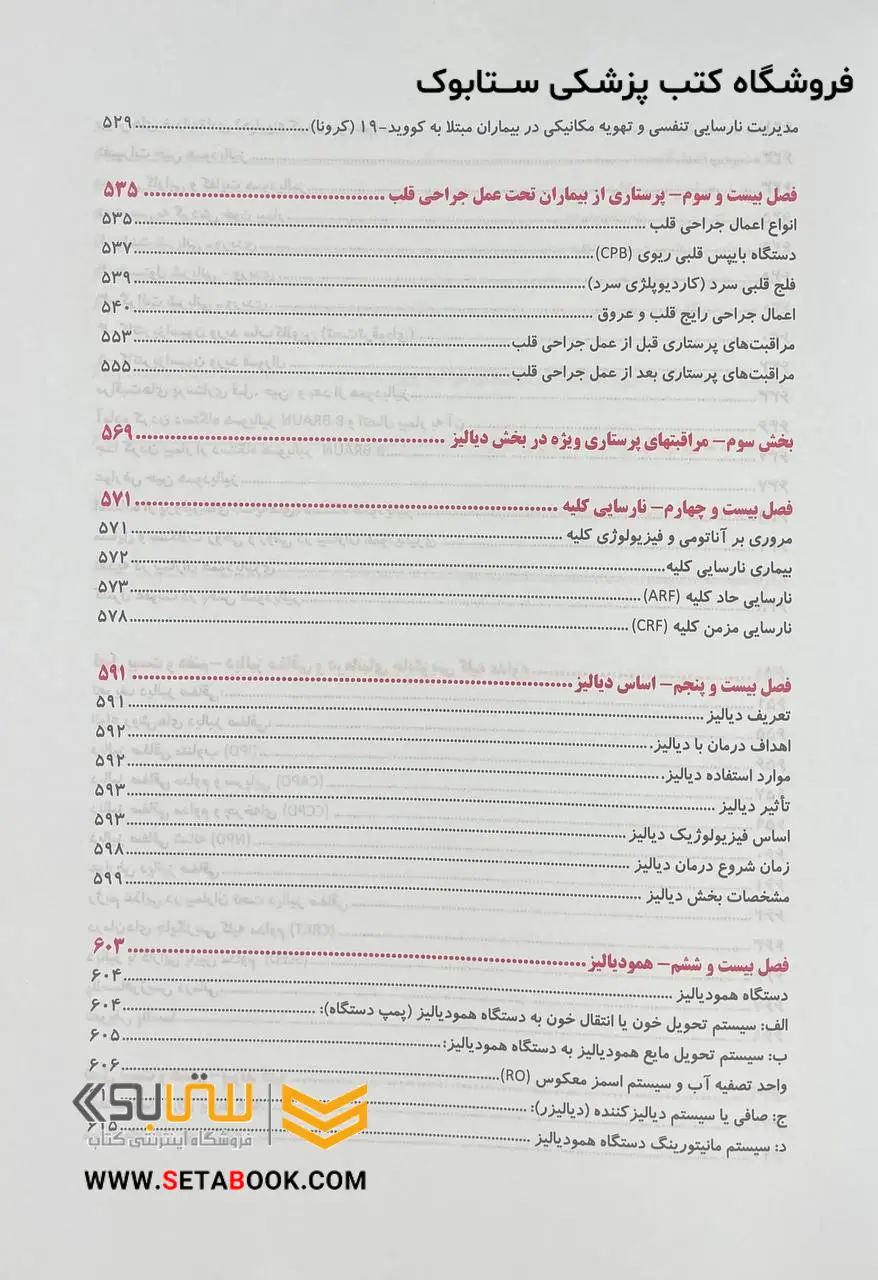 فروشگاه کتب پزشکی ستابوک
مدیریت نارسایی تنفسی و تهویه مکانیکی در بیماران مبتلا به کووید-۱۹ (کرونا) ۵۲۹
فصل بیست و سوم- پرستاری از بیماران تحت عمل جراحی قلب ۵۳۵
انواع اعمال جراحی قلب ۵۳۵
دستگاه بایپس قلبی ریوی (CPB) ۵۳۷
فلج قلبی سرد (کاردیوپلژی سرد) ۵۳۹
اعمال جراحی رایج قلب و عروق ۵۴۰
مراقبت‌های پرستاری قبل از عمل جراحی قلب ۵۵۳
مراقبت‌های پرستاری بعد از عمل جراحی قلب ۵۵۵
بخش سوم- مراقبتهای پرستاری ویژه در بخش دیالیز ۵۶۹
فصل بیست و چهارم- نارسایی کلیه ۵۷۱
مروری بر آناتومی و فیزیولوژی کلیه ۵۷۱
بیماری نارسایی کلیه ۵۷۲
نارسایی حاد کلیه (ARF) ۵۷۳
نارسایی مزمن کلیه (CRF) ۵۷۸
فصل بیست و پنجم- اساس دیالیز ۵۹۱
تعریف دیالیز ۵۹۱
اهداف درمان با دیالیز ۵۹۲
موارد استفاده دیالیز ۵۹۲
تأثیر دیالیز ۵۹۳
اساس فیزیولوژیک دیالیز ۵۹۳
زمان شروع درمان دیالیز ۵۹۸
مشخصات بخش دیالیز ۵۹۹
فصل بیست و ششم- همودیالیز ۶۰۳
دستگاه همودیالیز ۶۰۴
الف: سیستم تحویل خون یا انتقال خون به دستگاه همودیالیز (پمپ دستگاه): ۶۰۴
ب: سیستم تحویل مایع همودیالیز به دستگاه همودیالیز: ۶۰۵
واحد تصفیه آب و سیستم اسمز معکوس (RO) ۶۰۶
ج: صافی یا سیستم دیالیزکننده (دیالیزر):
د: سیستم مانیتورینگ دستگاه همودیالیز ۶۱۵
ستابوک
فروشگاه اینترنتی کتاب
WWW.SETABOOK.COM